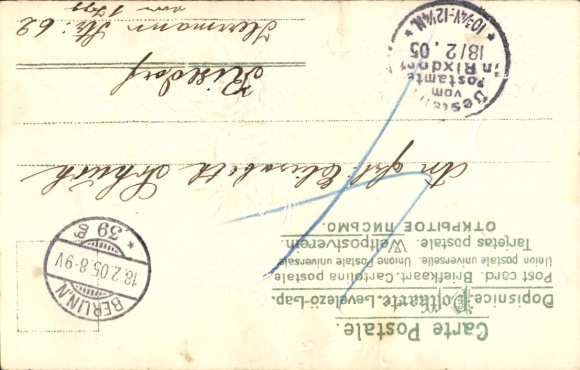 Carte Postale.
Dopisnice. Postkarte. Levelező-Lap.
Post card. Briefkaart. Cartolina postale
Union postale universelle. Unione Postale universale
Tarjetas postale. Weltpostverein.
ОТКРЫТОЕ ПИСЬМО.
BERLIN.N
18.2.05.8-9V.
* 39 g
An Frl. Elisabeth
Rixdorf
Hermann Str: 62
vorn 1 Tepp
Bestellt
vom
Postamte
in Rixdorf
18/2.05
* 10¾V-12¼N *